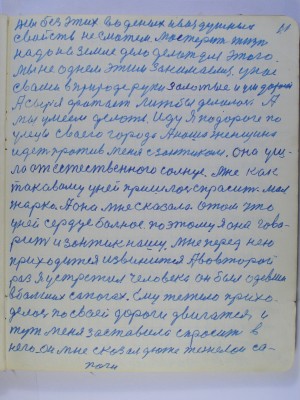 мы без этих водяных и воздушных
свойств не сможем. Мастерить жизнь
надо на земле дело делать для этого.
Мы не одной этим занимались, у нас
с вами в природе руки золотые и ум дорогой
А сырья хватает лишь бы делались. А
мы умеем делать. Иду я по дороге по
улице своего города А наша женщина
идет против меня с зонтиком. Она ушла
от естественного солнца. Мне как
таковому у ней пришлось спросить мол
жарко. А она мне сказала о том что
у ней сердце больное поэтому я она говорит
и зонтик ношу. Мне перед нею
приходится извинится А во второй
раз я устретил человека он был одевши
в больших сапогах. Ему тяжело приходилось
по своей дороге двигатся, и
тут меня заставило спросить в
него. он мне сказал дюже тежелоя са-
поги